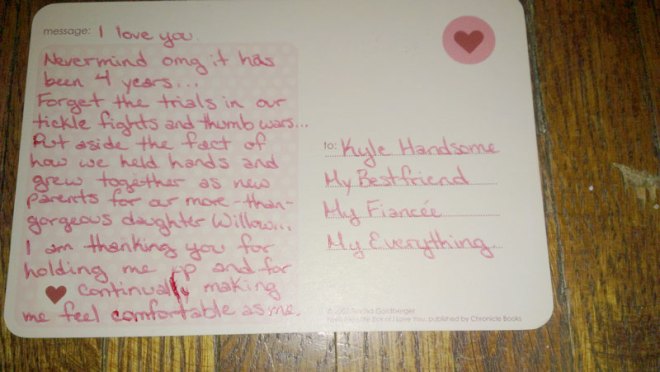 message: I love you.
Nevermind omg it has
been 4 years...
Forget the trials in our
tickle fights and thumb wars...
Put aside the fact of
how we held hands and
grew together as new
parents for our more-than-
gorgeous daughter Willow...
I am thanking you for
holding me up and for
continually making
me feel comfortable as me.
to: Kyle Handsome
My Bestfriend
My Fiancée
My Everything
Goldberger
I Love You, published by Chronicle Books